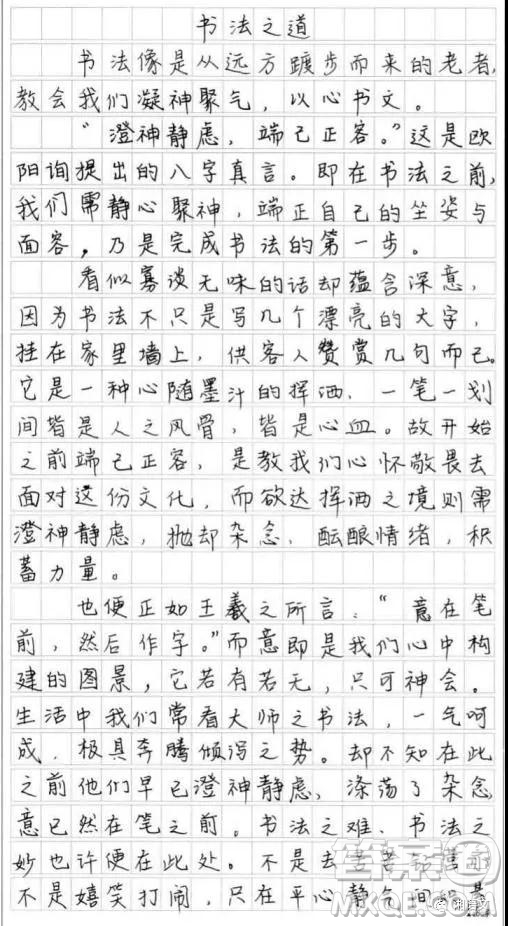 书法之道
书法像是从远方踱步而来的老者,
教会我们凝神聚气，以心书文。
“澄神静虑，端己正容。”这是欧
阳询提出的八字真言。即在书法之前,
我们需静心聚神，端正自己的坐姿与
面容，乃是完成书法的第一步。
看似寡谈无味的话却蕴含深意,
因为书法不只是写几个漂亮的大字,
挂在家里墙上，供客人赞赏几句而已。
它是一种心随墨汁的挥洒，一笔一划
间皆是人之风骨，皆是心血。故开始
之前端己正容，是教我们心怀敬畏去
面对这份文化，而欲达挥洒之境则需
澄神静虑，抛却杂念，酝酿情绪，积
蓄力量。
也便正如王羲之所言：“意在笔
前，然后作字。”而意即是我们心中构
建的图景，它若有若无，只可神会。
生活中我们常看大师之书法，一气呵
成，极具奔腾倾泻之势。却不知在此
之前他们早已澄神静虑，涤荡了杂念
意已然在笔之前。书法之难、书法之
妙也许便在此处。不是去苦苦
不是嬉笑打闹，只在平心静气间